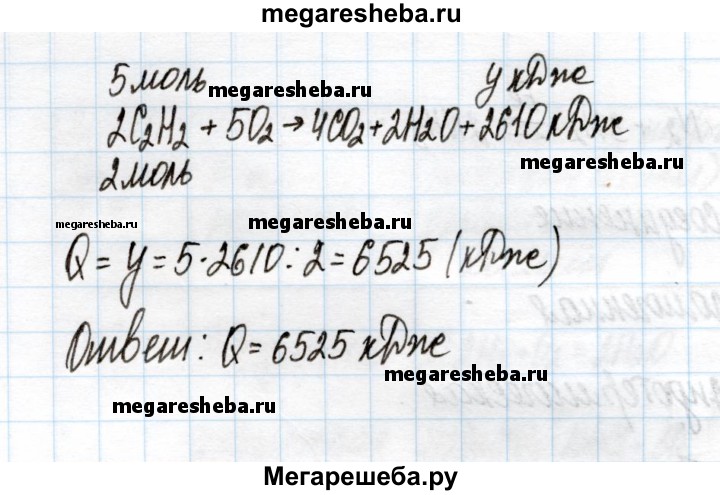 megaresheba.ru
5 моль megaresheba.ru y кДж
2C₂H₂ + 5O₂ → 4CO₂ + 2H₂O + 2610 кДж
2 моль megaresheba.ru
megaresheba.ru megaresheba.ru
Q = y = 5·2610:2 = 6525 (кДж)
Ответ: Q = 6525 кДж
megaresheba.ru
megaresheba.ru
Мегарешеба.ру